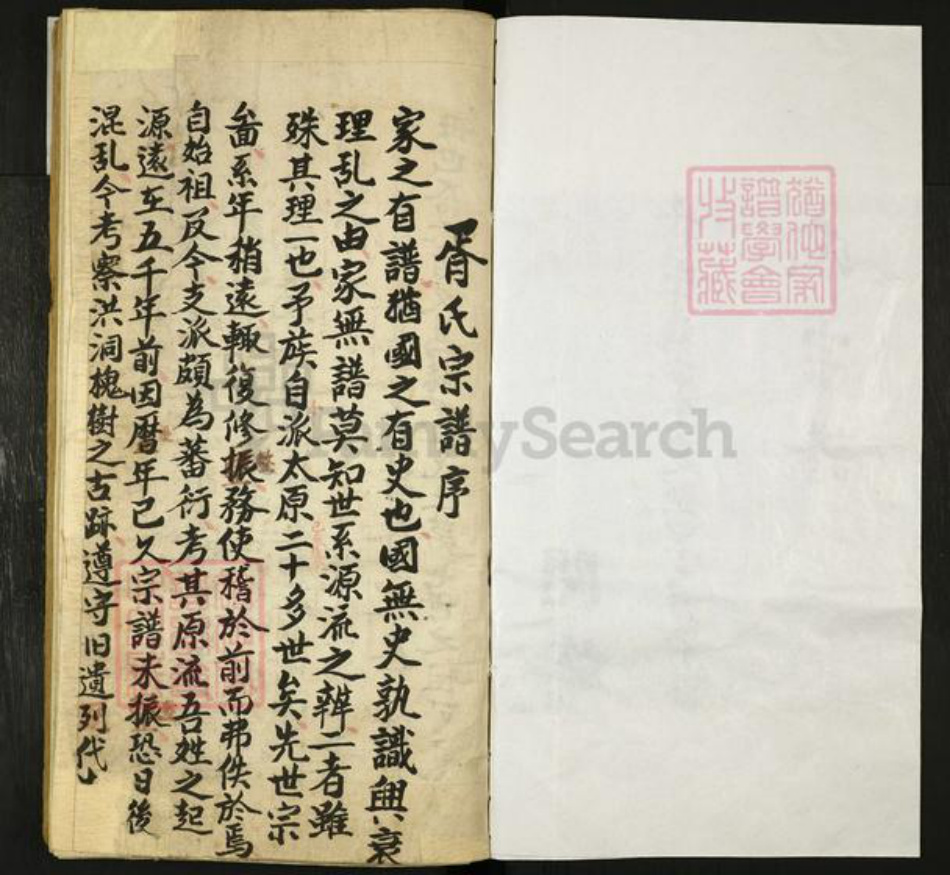 胥氏宗譜序
家之有譜猶國之有史也國無史孰識興衰
理乱之由家無譜莫知世系源流之辨二者雖
殊其理一也予族自派太原二十多世矣先世宗
啚系年稍遠輙復修振務使稽於前而弗佚於焉
自始祖及今支派頗為蕃衍考其原流吾姓之起
源遠在五千年前因曆年已久宗譜未振恐日後
混乱今考察洪洞槐樹之古跡遵守旧遺列代
FamilySearch
譜學會
收藏